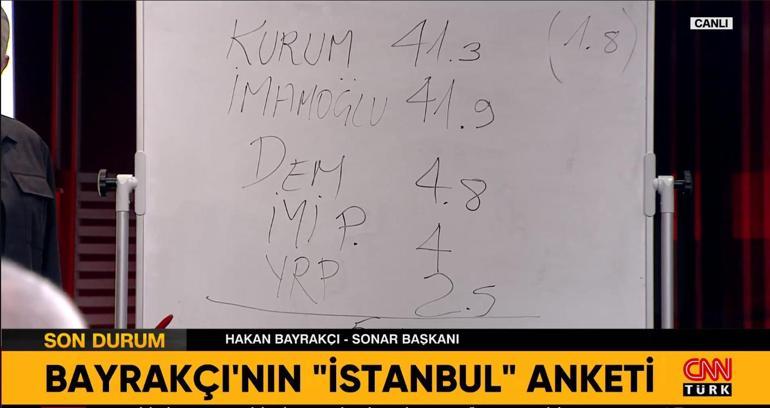 CANLI
KURUM 41.3 (1.8)
İMAMOĞLU 41.9
D.EM 4.8
İYİ P. 4
YRP 2.5
SON DURUM
HAKAN BAYRAKÇI - SONAR BAŞKANI
BAYRAKÇI'NIN "İSTANBUL" ANKETİ
CNN
TÜRK